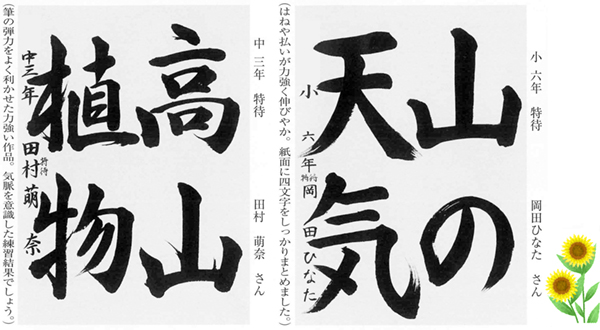 小 六年 特待 岡田ひなた さん
山の
天気
小 六年 特待 岡田ひなた
(はねや払いが力強く伸びやか。紙面に四文字をしっかりまとめました。)
中 三年 特待 田村 萌奈 さん
高山
植物
中三年 特待 田村萌奈
(筆の弾力をよく利かせた力強い作品。気脈を意識した練習結果でしょう。)